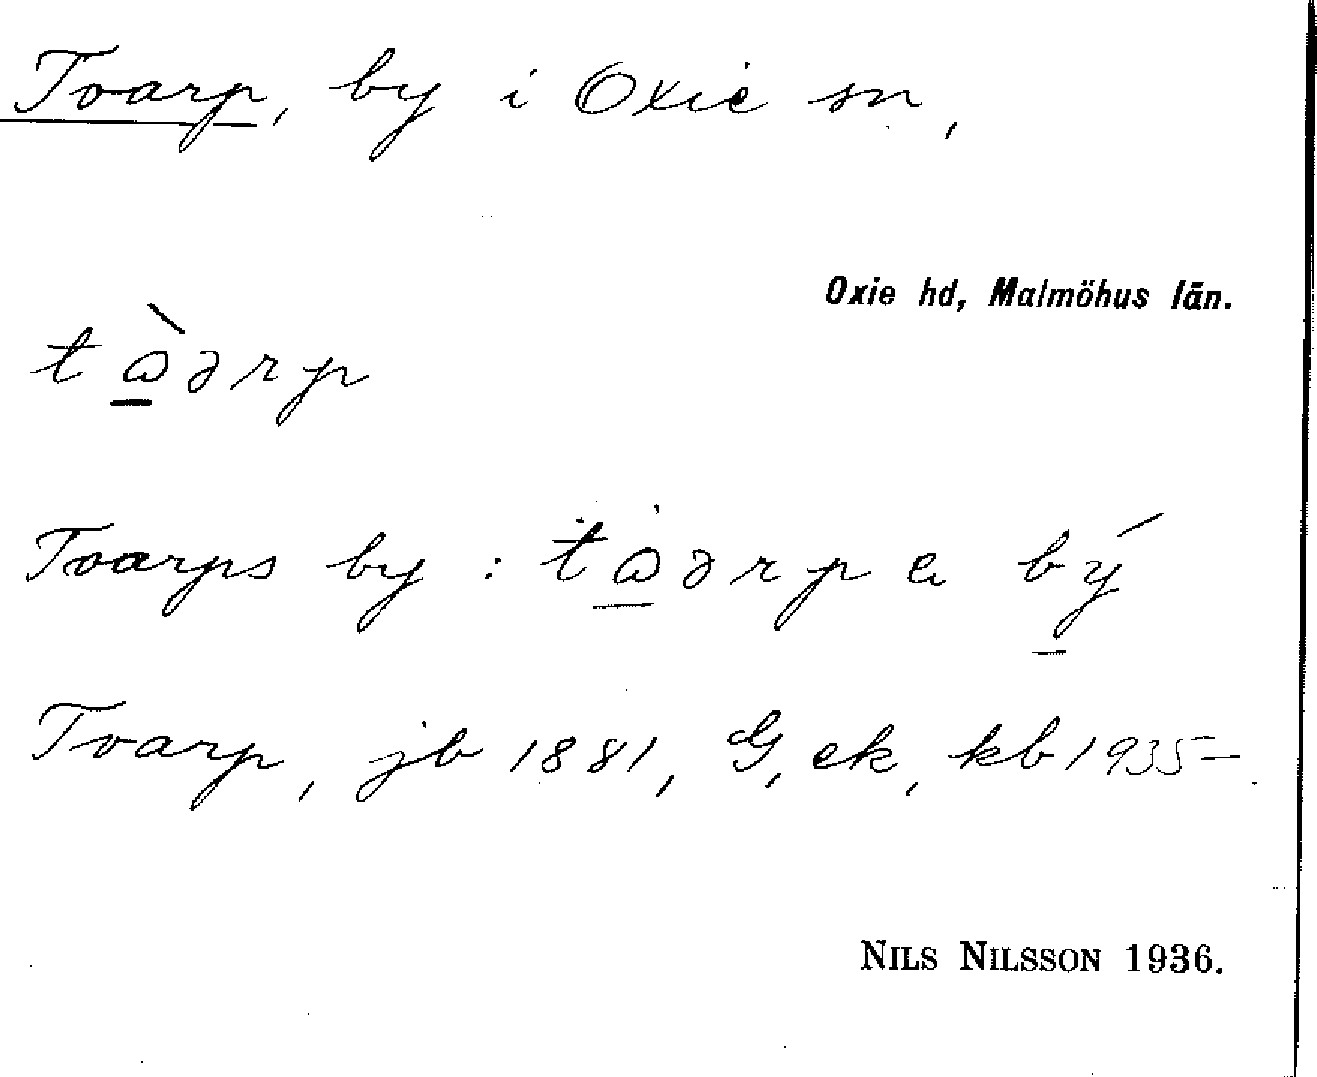 Tvarp, by i Oxie sn,
Oxie hd, Malmöhus län.
Tvarps by :
Tvarp, jb 1881, G, ek, kb 1935–
NILS NILSSON 1936.